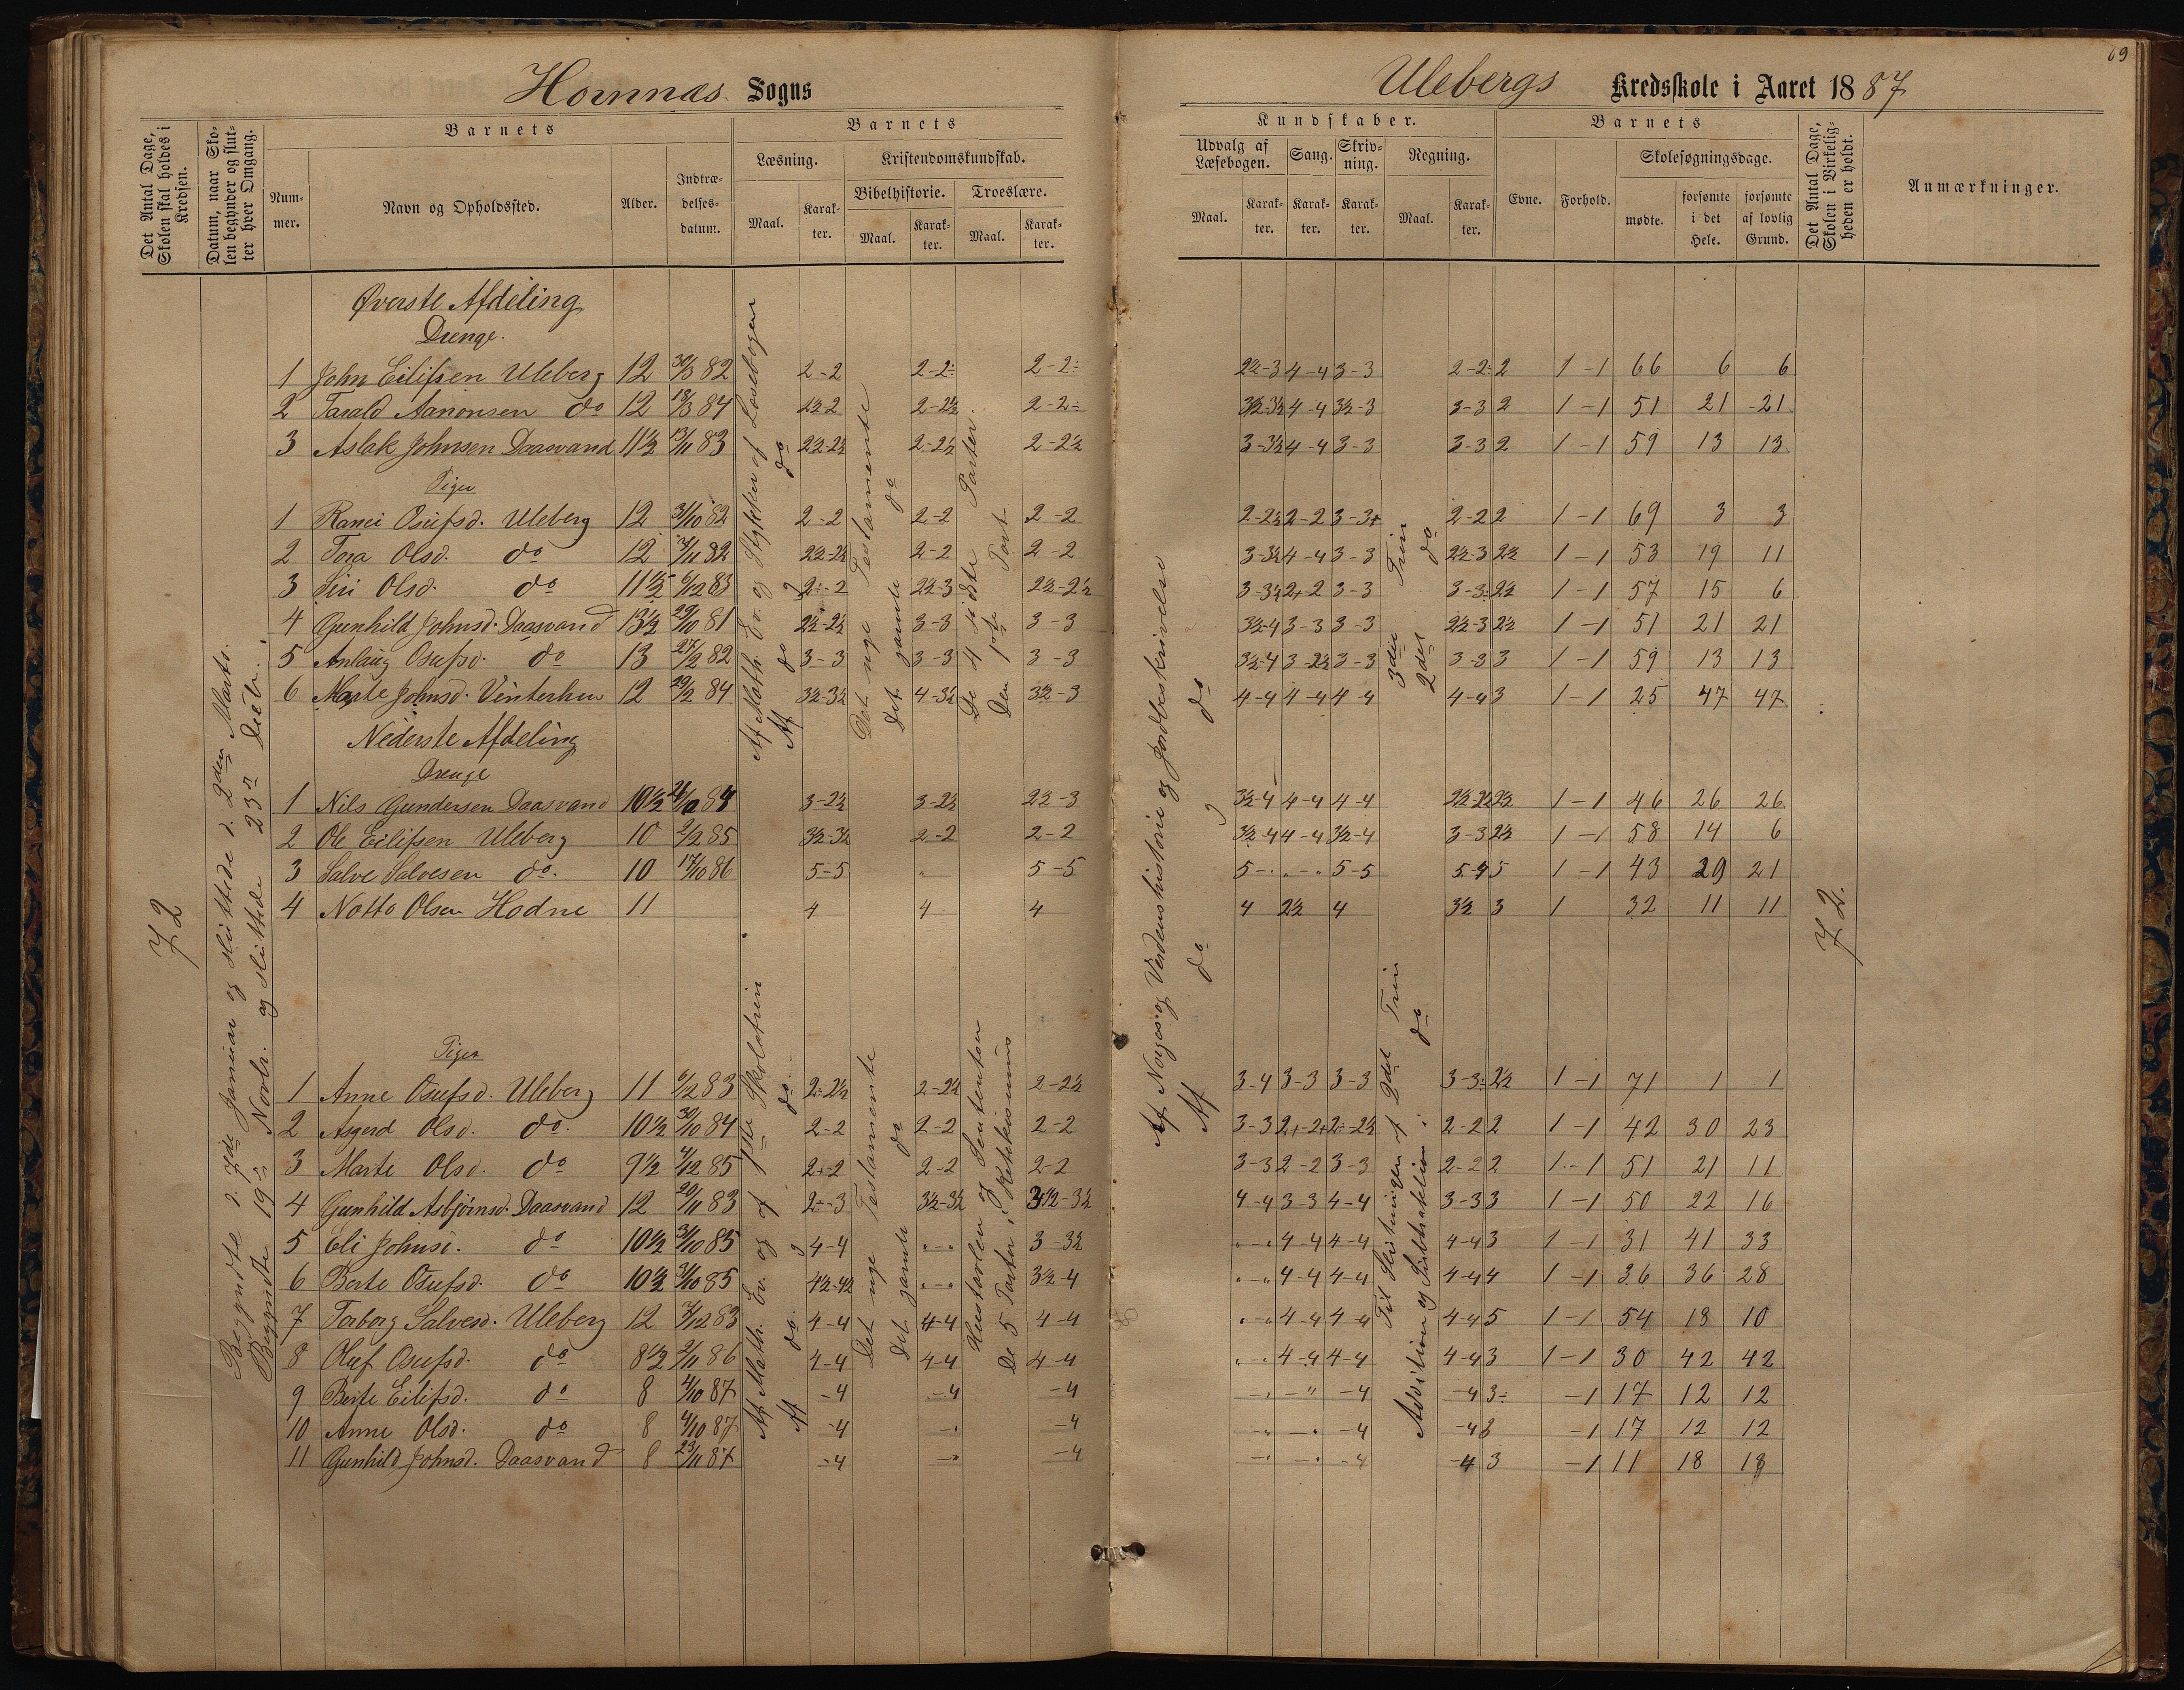 69
Hornnæs Sogns
Ulebergs Kredsskole i Aaret 1887
Det Antal Dage, Skolen skal holdes i Kredsen.
Datum, naar Skolen begynder og slutter hver Omgang.
Barnets
Nummer.
Navn og Opholdssted.
Alder.
Indtrædelsesdatum.
Barnets
Læsning.
Maal.
Karakter.
Kristendomskundskab.
Bibelhistorie.
Maal.
Karakter.
Troeslære.
Maal.
Karakter.
Kundskaber.
Udvalg af Læsebogen.
Maal.
Karakter.
Sang.
Karakter.
Skrivning.
Karakter.
Regning.
Maal.
Karakter.
Barnets
Evne.
Forhold.
Skolesøgningsdage.
mødte.
forsømte i det Hele.
forsømte af lovlig Grund.
Det Antal Dage, Skolen i Virkeligheden er holdt.
Anmærkninger.
72
Begyndte d. 7de Januar og sluttede d. 2den Marts.
Begyndte 19de Novbr. og sluttede 23de Decbr.
Øverste Afdeling
Drenge.
1 John Eilifsen Uleberg 12 30/3 82 2-2 2-2÷ 2-2÷ 2½-3 4-4 3-3 2-2÷ 2 1-1 66 6 6
2 Tarald Aanonsen do 12 18/3 84 2½-2 2-2½ 2-2÷ 3½-3½ 4-4 3½-3 3-3 2 1-1 51 21 21
3 Aslak Johnsen Daasvand 11½ 13/11 83 2½-2½ 2-2½ 2-2½ 3-3½ 4-4 3-3 3-3 2 1-1 59 13 13
Piger
1 Ranei Osufsd. Uleberg 12 31/10 82 2-2 2-2 2-2 2-2½ 2-2 3-3+ 2-2 2 1-1 69 3 3
2 Tora Olsd. do 12 /11 82 2½-2½ 2-2 2-2 3-3½ 4-4 3-3 2½-3 2½ 1-1 53 19 11
3 Siri Olsd. do 11½ 6/12 83 2÷-2 2½-3 2½-2½ 3-3½ 2+2 3-3 3-3÷ 2½ 1-1 57 15 6
4 Gunhild Johnsd. Daasvand 13½ 29/10 81 2½-2½ 3-3 3-3 3½-4 3-3 3-3 2½-3 2½ 1-1 51 21 21
5 Anlaug Osufsd. do 13 27/2 82 3-3 3-3 3-3 3½-4 3-2½ 3-3 3-3 3 1-1 59 13 13
6 Marte Johnsd. Vinterhun 12 19/2 84 3½-3½ 4-3½ 3½-3 4-4 4-4 4-4 4-4 3 1-1 25 47 47
Af Math. Ev. og Stykker af Læsebogen
Af do og do
Det nye Testamente
Det gamle do
De 4 sidste Parter.
Den 1ste Part
Af Norges og Verdenshistorie og Jordbeskrivelse
Af do og do
3die Trin
2det do
Nederste Afdeling
Drenge
1 Nils Gundersen Daasvand 10½ 84 3-2½ 3-2½ 2½-3 3½-4 4-4 4-4 2½-2½ 2½ 1-1 46 26 26
2 Ole Eilifsen Uleberg 10 2/2 85 3½-3½ 2-2 2-2 3½-4 4-4 3½-4 3-3 2½ 1-1 58 14 6
3 Salve Salvesen do. 10 17/10 86 5-5 " 5-5 5-" "-" 5-5 5-4 5 1-1 43 29 21
4 Notto Olsen Hodne 11 4 4 4 4 2½ 4 3½ 3 1 32 11 11
72.
Piger
1 Anne Osufsd. Uleberg 11 6/12 83 2÷2½ 2-2½ 2-2½ 3-4 3-3 3-3 3-3÷ 2½ 1-1 71 1 1
2 Asgerd Olsd. do. 10½ 30/10 84 2-2 2-2 2-2 3-3 2+-2+ 2÷-2½ 2-2 2 1-1 42 30 23
3 Marte Olsd. do 9½ 4/12 85 2+-2 2-2 2-2 3-3 2-2 3-3 2-2 2 1-1 51 21 11
4 Gunhild Asbjörnsd. Daasvand 12 20/11 83 2÷-3 3½-3½ 3½-3½ 4-4 3-3 4-4 3-3 3 1-1 50 22 16
5 Eli Johnsd. do 10½ 31/10 85 4-4 "-" 3-3½ "-" 4-4 4-4 4-4 3 1-1 31 41 33
6 Berte Osufsd. do 10½ 31/10 85 4½-4½ "-" 3½-4 "-" 4-4 4-4 4-4 4 1-1 36 36 28
7 Torborg Salvesd. Uleberg 12 7/12 83 4-4 4-4 4-4 "-" 4-4 4-4 4-4 5 1-1 54 18 10
8 Oluf Osufsd. do 8½ 2/11 86 4-4 4-4 4-4 "-" 4-4 4-4 4-4 3 1-1 30 42 42
9 Berte Eilifsd. do 8 4/10 87 -4 -4 -4 -" -" -4 -4 3÷ -1 17 12 12
10 Anne Olsd. do 8 4/10 87 -4 -" -4 -" -" -4 -4 3 -1 17 12 12
11 Gunhild Johnsd. Daasvand 8 23/11 87 -4 -" -4 -" -" -4 -4 3 -1 11 18 18
Af Math. Ev. og af 1ste Skoletrin
Af do. og do.
Det nye Testamente
Det gamle do
Hustavlen og Sententsen
De 5 Parter i Katekismus
Til Slutningen af 2det Trin
Addition og Subtraktion i do